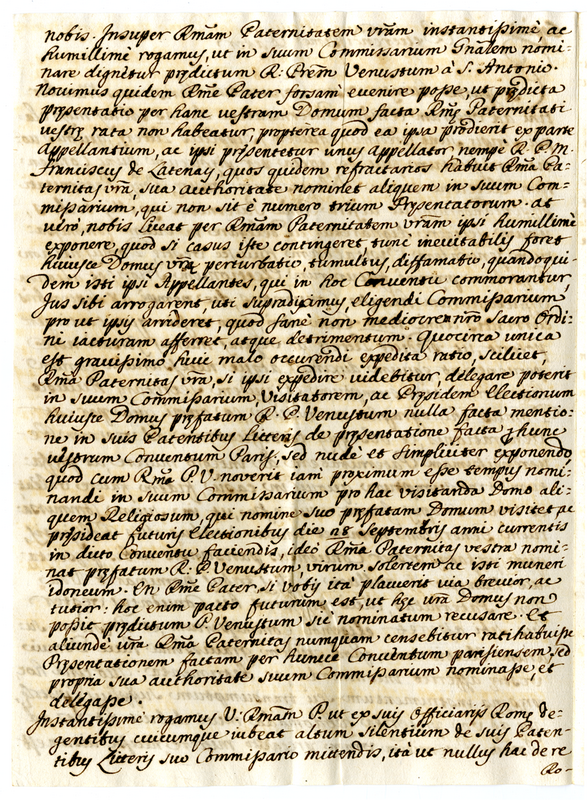 nobis. Insuper Rmãm Paternitatem vrãm instantissimè, ac
humillimè rogamus, ut in suum Commissarium Gnãlem nomi-
nare dignetur prędictum R: Prẽm Venustum à S. Antonio.
Novimus quidem Rmẽ Pater forsani evenire posse, ut prędicta
pręsentatio per hanc vestram Domum facta Rmę Paternitati
vestrę rata non habeatur, propterea quod ea ipsa prodierit ex parte
Appellantium, ac ipsi pręsentetur unus Appellator nempè R. P. M.
Franciscus de Latenay, quos quidem refractarios habuit Rmã Pa-
ternitas vrã, sua authoritate nominet aliquem in suum Com-
missarium, qui non sit è numero trium Pręsentatorum. at
verò, nobis liceat per Rmãm Paternitatem vram ipsi humillimè
exponere, quod si casus iste contingeret, tunc inevitabilis foret
huiusce Domus vrę perturbatio, tumultus, diffamatio, quandoqui-
dem isti ipsi Appellantes, qui in hoc Conventu commorantur,
Jus sibi arrogarent, uti supradiximus, eligendi Commissarium,
pro ut ipsis arrideret, quod sanè non mediocre nrõ Sacro Ordi-
ni iacturam afferret, atque detrimentum. Quocirca unica
est gravissimo huic malo occurendi expedita ratio, scilicet,
Rmã Paternitas vrã, si ipsi expedire videbitur, delegare poterit
in suum Commissarium, Visitatorem, ac Pręsidem Electionum
huiusce Domus pręfatum R. P. Venustum nulla facta mentio-
ne in suis Patentibus Litteris de pręsentatione facta p hunc
vestrum Conventum Paris; sed nudè et simpliciter exponendo,
quod cum Rmã P. V. noverit iam proximum esse tempus nomi-
nandi in suum Commissarium pro hac visitanda Domo ali-
quem Religiosum, qui nomine suo pręfatam Domum visitet, ac
pręsideat futuris Electionibus die 28 Septembris anni currentis
in dicto Conventu faciendis, ideò Rmã Paternitas vestra nomi-
nat pręfatum R: P. Venustum, virum solertem ac isti muneri
idoneum. En Rmẽ Pater, si vobis ità placuerit via brevior, ac
tutior: hoc enim pacto futurum est, ut hęc vrã Domus non
possit prędictum P. Venustum sic nominatum recusare. Et
aliundè vrã Rmã Paternitas numquam censebitur rati habuisse
Pręsentationem factam per hunce Conventum parisiensem, sed
propria sua authoritate suum Commissarium nominasse, et
delegasse.
Instantissimè rogamus V: Rmãm P. ut ex suis Officiariis Romę de-
gentibus cuicumque iubeat altum silentium de suis Paten-
tibus Litteris suo Commissario mittendis, ità ut nullus hac de re
Ro-